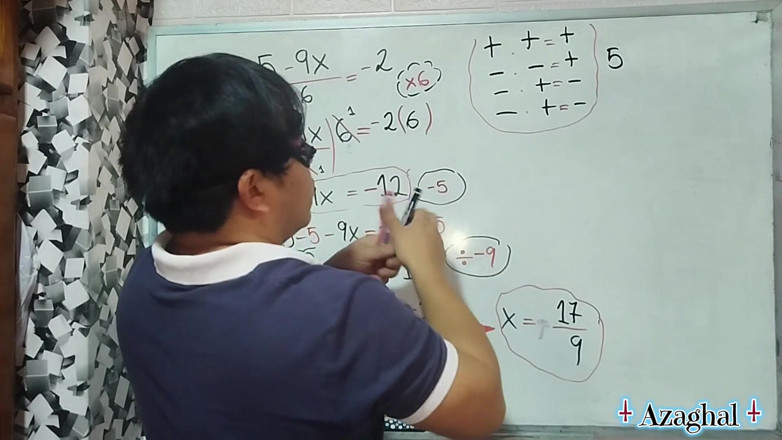 5 - 9x = -2
6
×6
x | 6 = -2(6)
x = -12
-5
-5 - 9x =
÷-9
x = 17
9
+ · + = +
- · - = +
- · + = -
- · + = -
5
Azaghal